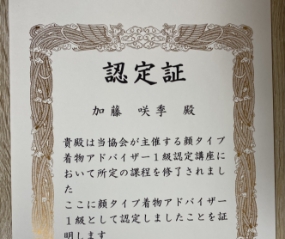 認定証
加藤 咲季 殿
貴殿は当協会が主催する顔タイプ
着物アドバイザー1級認定講座に
おいて所定の課程を修了されまし
た
ここに顔タイプ着物アドバイザー
1級として認定しましたことを証
明します